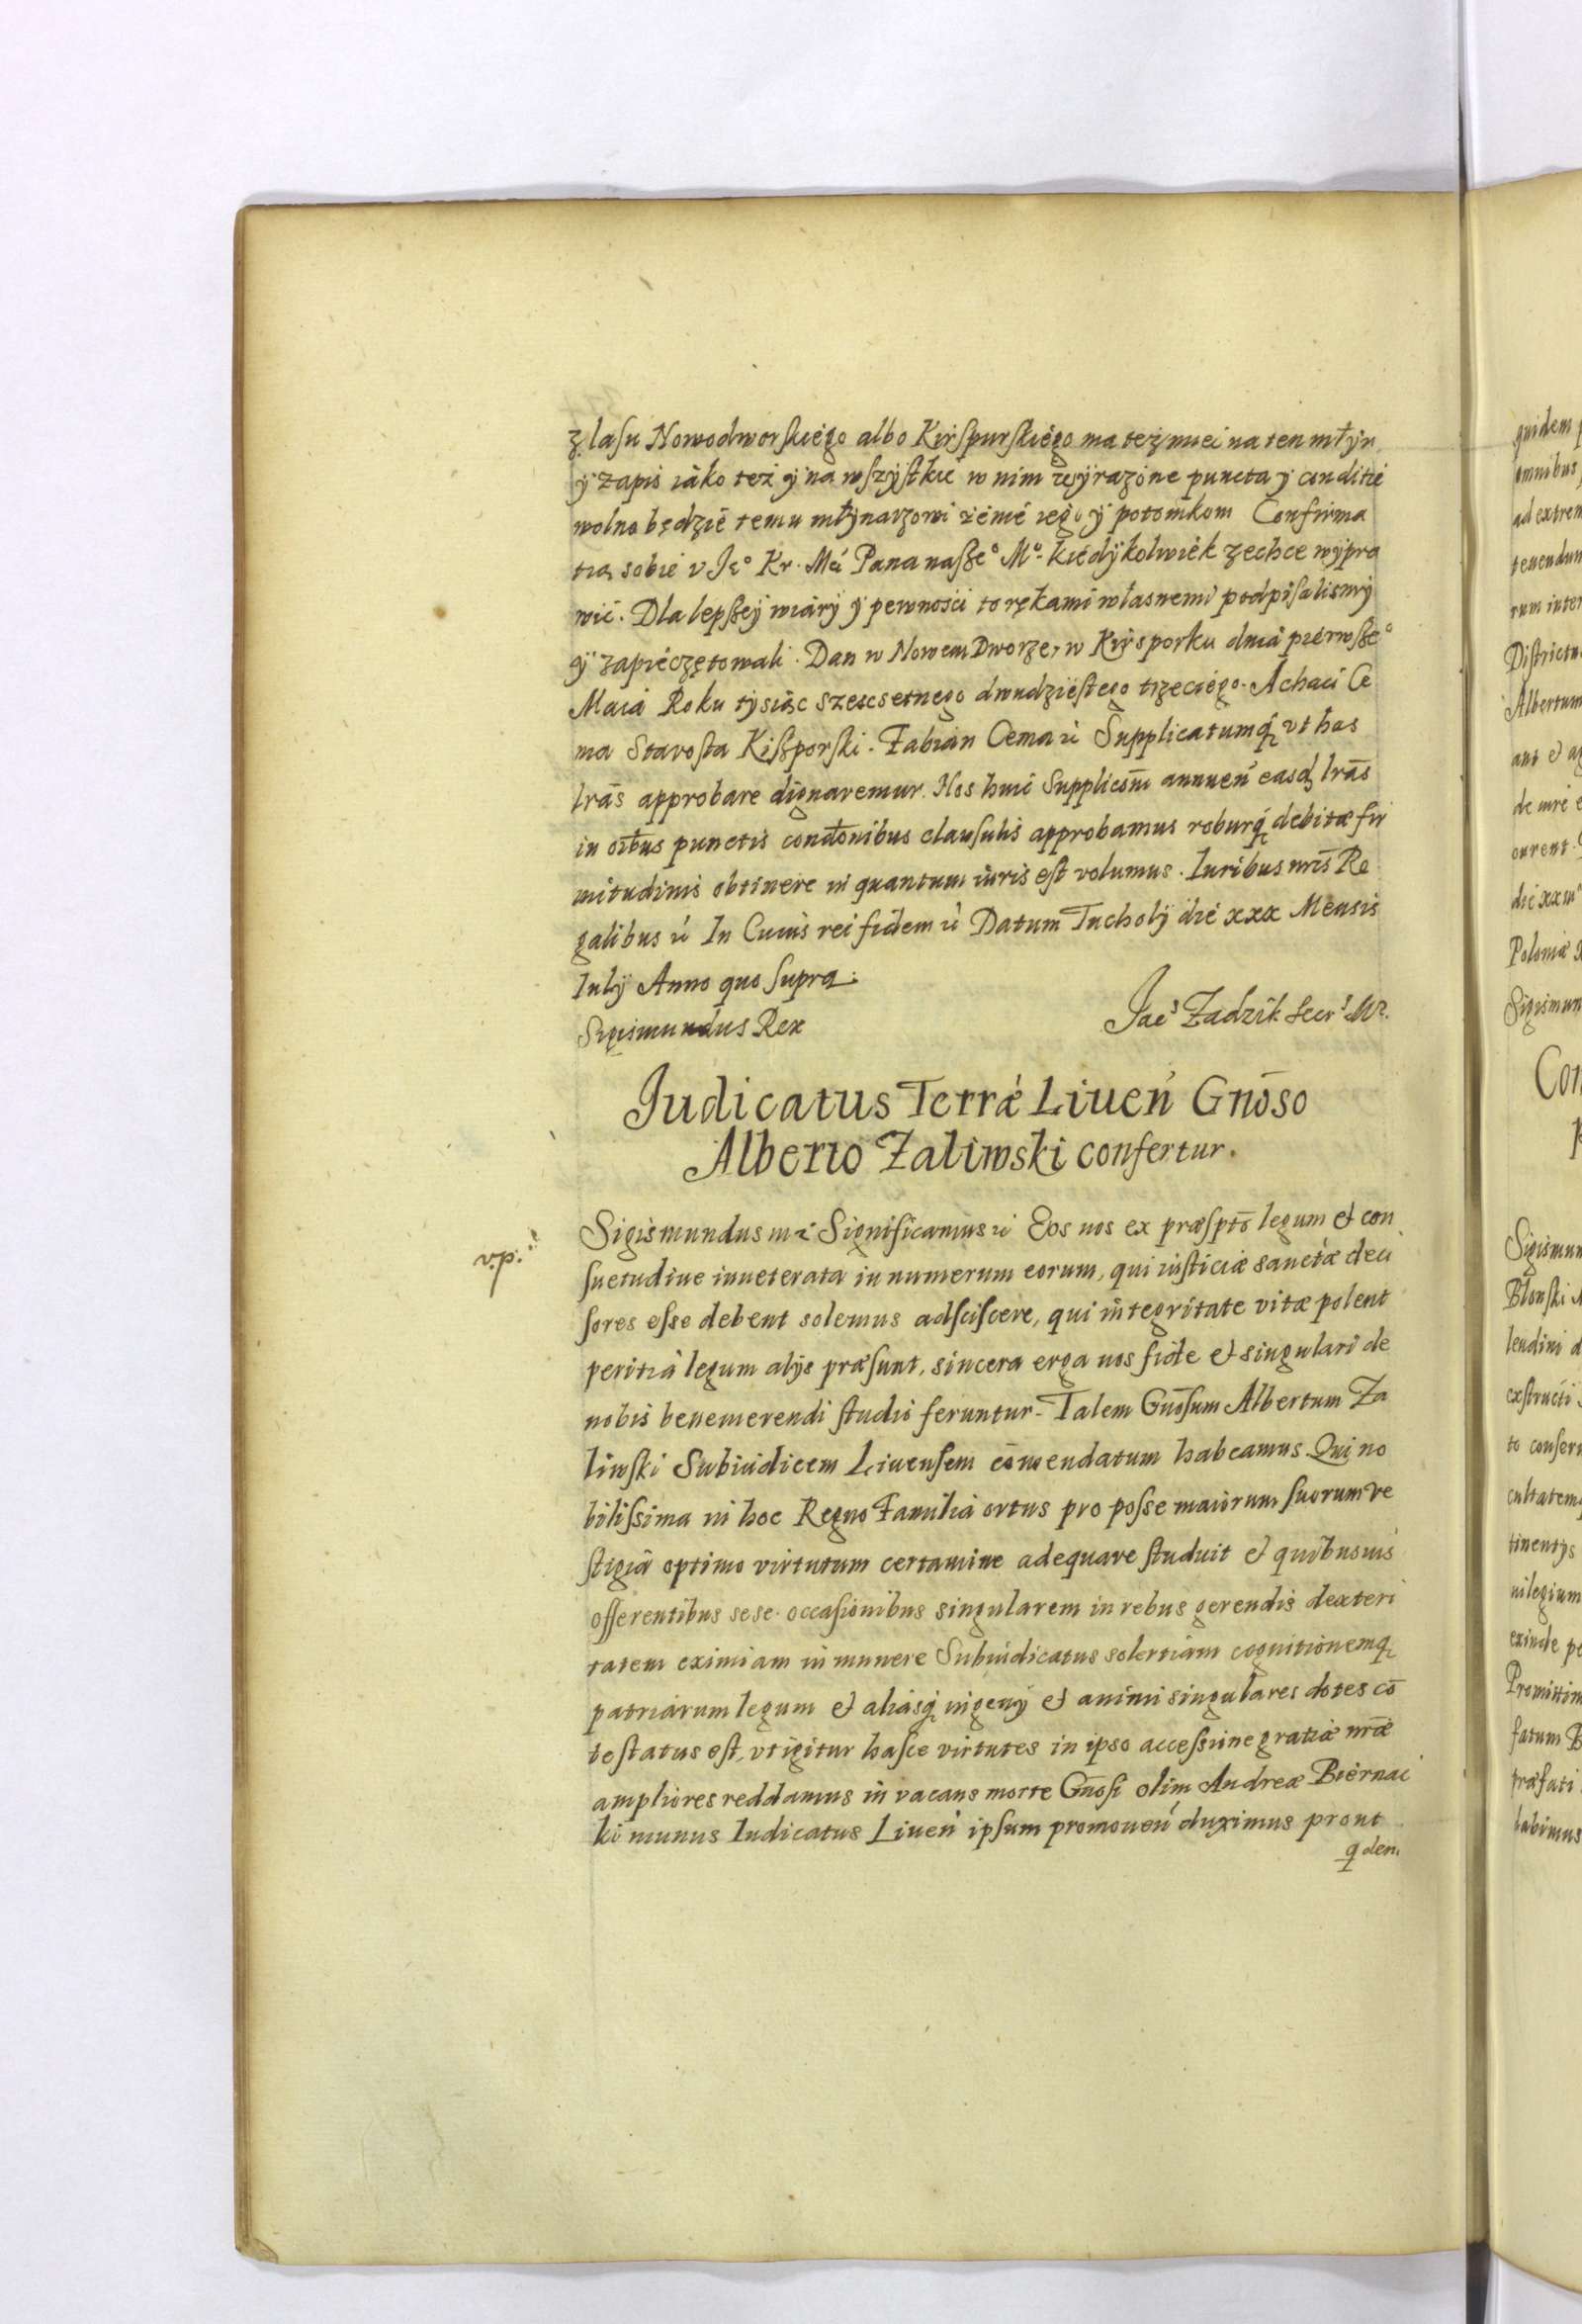 z lasu Nowodworskiégo albo Kirszpurskiégo ma też mieć na ten młýn
ÿ zapis iáko też ÿ na wszýstkié w nim wyrazóne puncta y conditié
wolno będzié temu młýnarzowi żénié iégo ÿ potomkom Confirma
tią sobié v Je° Kr. Mći Pana nasze° Mᵒ. kiédÿkolwiék zechce wÿpra
wić. Dla lepszéÿ wiárÿ ÿ pewnosći to rękámi własnemi podpisalismÿ
ÿ zapiéczętowali. Dan w Nowem Dworze, w Kirsporku dniá piérwsze°
Maiá Roku tysiąc szescsetnego dwudziéstego trzeciégo. Achaci Ce
ma Starosta Kiszporski. Fabian Cema ić Supplicatumq́ vt has
lrãs approbare dignaremur. Nos huic Supplicõni annueń easq́ lrãs
in oĩbus punctis condõnibus clausulis approbamus roburq́ debitæ fir
mitudinis obtinere in quantum iuris est volumus. Iuribus nrĩs Re
galibus ić In Cuius rei fidem ić Datum Tucholÿ dié xxx Mensis
Iulÿ Anno quo supra.
Sigismundus Rex
Jac³ Zadzik Secr³ Mʳ.
Judicatus Terræ Liueń Gnõso
Alberto Zaliwski confertur.
Sigismundus ić Significamus ić Eos nos ex præsptõ legum et con
suetudine inueterata in numerum eorum, qui iusticiæ sanctæ deci
sores esse debent solemus adsciscere, qui integritate vitæ polent
peritiâ legum alÿs præsunt, sincera erga nos fide et singulari de
nobis benemerendi studio feruntur. Talem Gnõsum Albertum Za
liwski Subiudicem Liuensem cõmendatum habeamus Qui no
bilissima in hoc Regno Familiâ ortus pro posse maiorum suorum ve
stigia optimo virtutum certamine adequare studuit et quibusuis
offerentibus sese occasionibus singularem in rebus gerendis dexteri
tatem eximiam in munere Subiudicatus solertiam cognitionemq́
patriarum legum et aliasq́ ingenÿ et animi singulares dotes cõ
testatus est, vt igitur hasce virtutes in ipso accessione gratiæ nrãe
ampliores reddamus in vacans morte Gnõsi olim Andreæ Biérnac
ki munus Iudicatus Liueń ipsum promoueń duximus prout
qdem